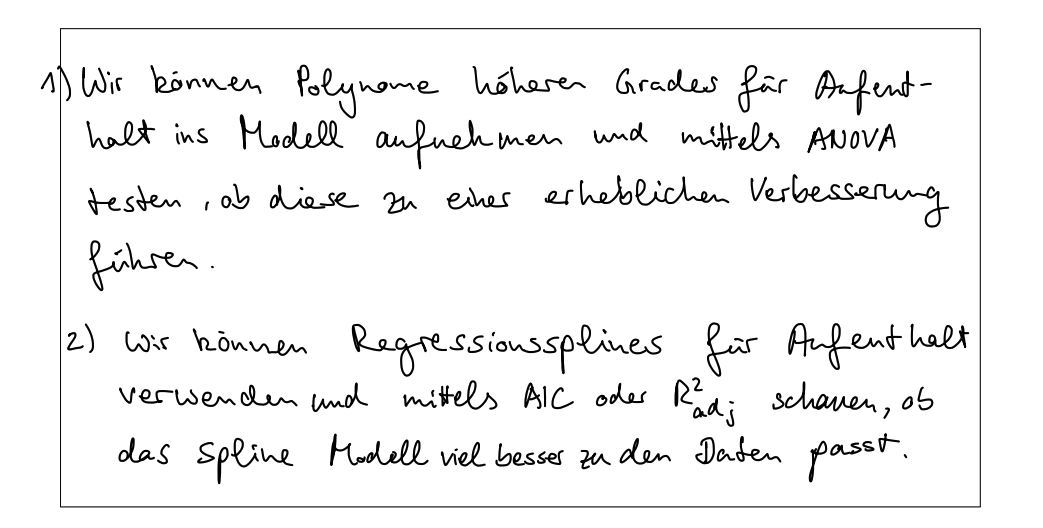 1) Wir können Polynome höheren Grades für Aufent-
halt ins Modell aufnehmen und mittels ANOVA
testen, ob diese zu einer erheblichen Verbesserung
führen.
2) Wir können Regressionssplines für Aufenthalt
verwenden und mittels AIC oder R²adj schauen, ob
das Spline Modell viel besser zu den Daten passt.